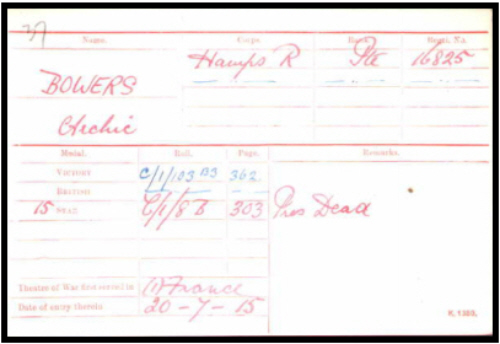 37
Name. Corps. Rank. Regtl. No.
BOWERS Hamps R Pte 16825
Archie
Medal. Roll. Page. Remarks.
VICTORY C/1/103 B3 362
BRITISH
15 STAR C/1/8 B 303 Pres Dead
Theatre of War first served in (1) France
Date of entry therein 20-7-15
K. 1380.